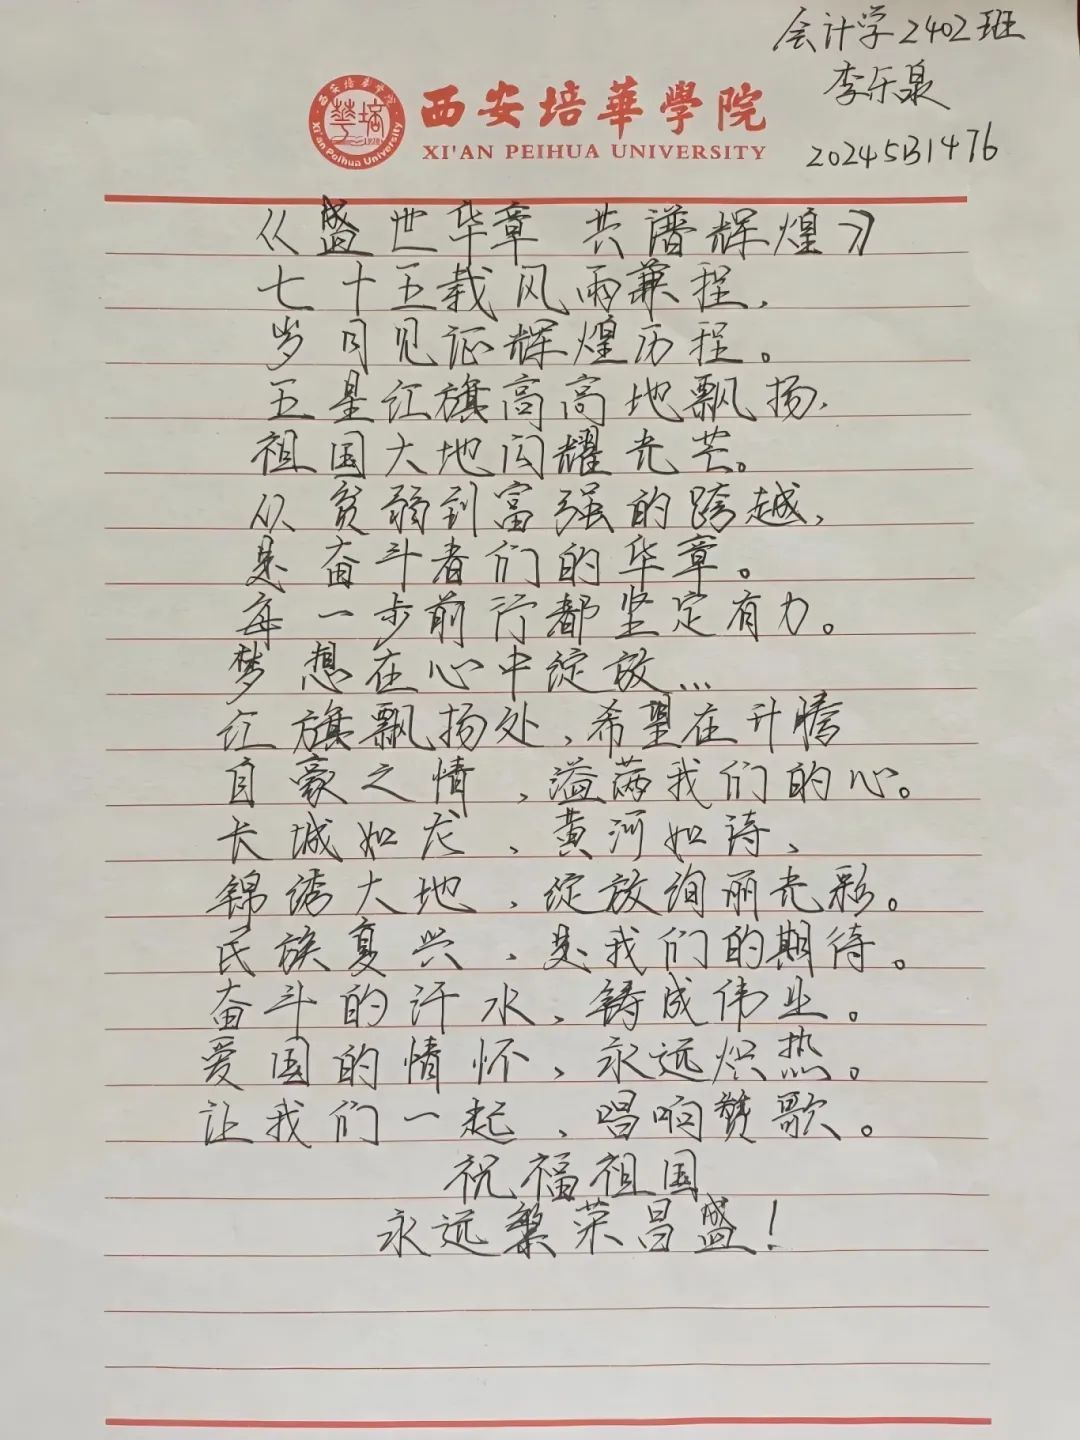 会计学2402班
李乐泉
20245B1476
西安培華學院
XI'AN PEIHUA UNIVERSITY
西安培華學院
Xi'an Peihua University
1928
《盛世华章 共谱辉煌》
七十五载风雨兼程，
岁月见证辉煌历程。
五星红旗高高地飘扬，
祖国大地闪耀光芒。
从贫弱到富强的跨越，
是奋斗者们的华章。
每一步前行都坚定有力。
梦想在心中绽放…
红旗飘扬处、希望在升腾
自豪之情，溢满我们的心。
长城如龙、黄河如诗、
锦绣大地，绽放绚丽光彩。
民族复兴，是我们的期待。
奋斗的汗水、铸成伟业。
爱国的情怀、永远炽热。
让我们一起、唱响赞歌。
祝福祖国
永远繁荣昌盛！